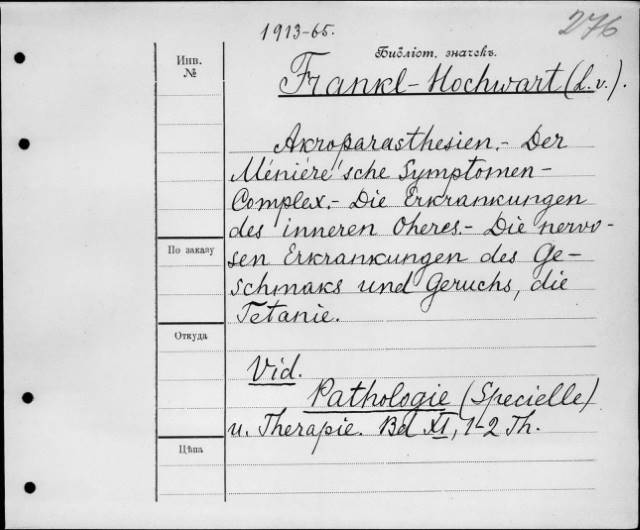 1913-65.
276
Библіот. значекъ.
Инв.
№
Frankl-Hochwart (L.v.).
Akroparasthesien.- Der
Méniére'sche Symptomen-
Complex.- Die Erkrankungen
des inneren Oheres.- Die nervo-
По заказу
sen Erkrankungen des Ge-
schmaks und Geruchs, die
Tetanie.
Откуда
Vid.
Pathologie (Specielle)
u. Therapie. Bd XI, 1-2 Th.
Цѣна